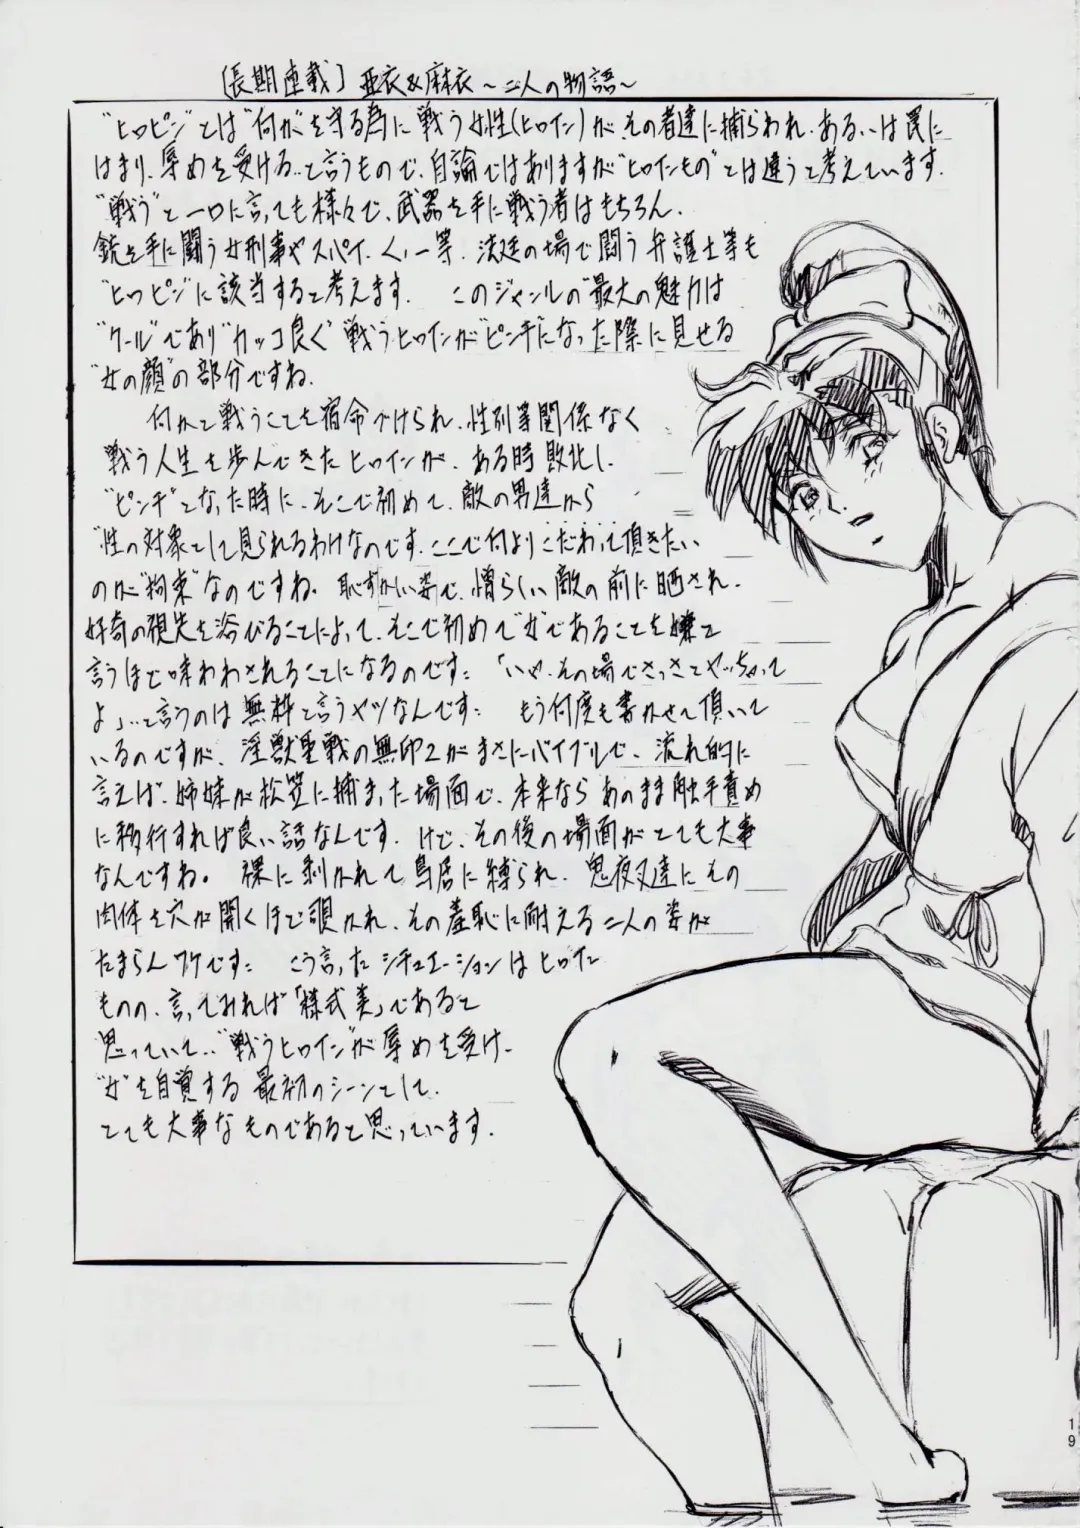 [長期連載] 亜衣&麻衣～二人の物語～
"ヒロピン"とは"何か"を守る為に戦う女性(ヒロイン)が、その者達に捕らわれ、あるいは罠に
はまり、辱めを受ける…と言うもので、自論ではありますが"ヒロインもの"とは違うと考えています.
"戦う"と一口に言っても様々で、武器を手に戦う者はもちろん、
銃を手に闘う女刑事やスパイ、くノ一等、法廷の場で闘う弁護士等も
"ヒロピン"に該当すると考えます. このジャンルの"最大の魅力は
"クール"であり"カッコ良く"戦うヒロインが"ピンチ"になった際に見せる
"女の顔"の部分ですね.
何かと戦うことを宿命づけられ、性別等関係なく
戦う人生を歩んできたヒロインが、ある時敗北し、
"ピンチ"となった時に、そこで初めて、敵の男達から
"性の対象として見られるわけなのです.ここで何よりこだわって頂きたい
のが"拘束"なのですね。恥ずかしい姿で、憎らしい敵の前に晒され、
好奇の視失を浴びることによって、そこで初めて"女"であることを嫌と
言うほど味わわされることになるのです: 「いや、その場でさっさとヤッちゃって
よ」…と言うのは無粋と言うヤツなんです: もう何度も書かせて頂いて
いるのですが、淫獣聖戦の無印2がまさにバイブルで、流れ的に
言えば、姉妹が松笠に捕まった場面で、本来ならあのまま触手責め
に移行すれば良い話なんです. けど、その後の場面がとても大事
なんですね。 裸に剥かれて鳥居に縛られ、鬼夜叉達にその
肉体を穴が開くほど覗かれ、その羞恥に耐える二人の姿が
たまらんワケです: こう言ったシチュエーションはヒロイン
ものの、言ってみれば「様式美」であると
思っていて…"戦うヒロイン"が辱めを受け、
"女"を自覚する最初のシーンとして、
とても大事なものであると思っています.
19